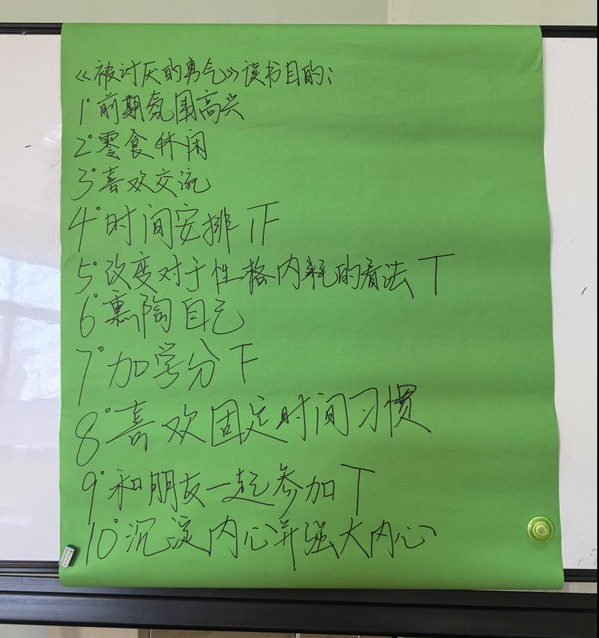 《被讨厌的勇气》读书目的：
1°前期氛围高兴
2°零食休闲
3°喜欢交流
4°时间安排 TF
5°改变对于性格内耗的看法 T
6°熏陶自己
7°加学分 F
8°喜欢固定时间习惯
9°和朋友一起参加 T
10°沉淀内心并强大内心